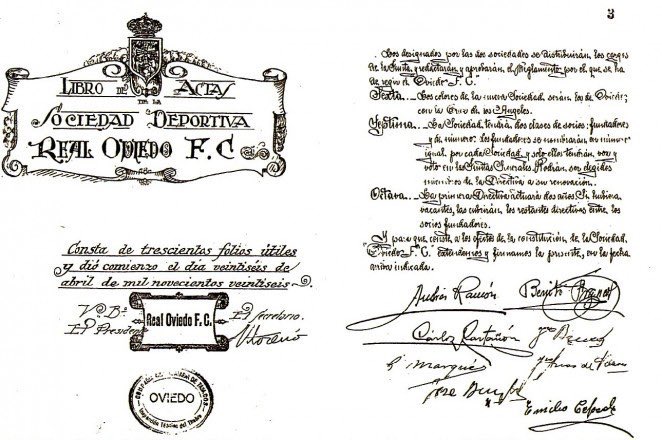 LIBRO DE ACTAS
DE LA
SOCIEDAD DEPORTIVA
REAL OVIEDO F.C.
Consta de trescientos folios útiles
y dió comienzo el día veintiséis de
abril de mil novecientos veintiseis.
V.º B.º
El Presidente
Real Oviedo F.C.
El Secretario.
OVIEDO
3
Los designados por las dos sociedades se distribuirán los cargos
de la Junta, y redactarán y aprobarán el Reglamento por el que se ha
de regir el Oviedo F.C.
Sexta.- Los colores de la nueva Sociedad serán los de Oviedo;
con la Cruz de los Angeles.
Séptima.- La Sociedad tendrá dos clases de socios: fundadores
y de número. Los fundadores se nombrarán en número
igual por cada Sociedad y solo ellos tendrán voz y
voto en las Juntas Generales. Podrán ser elegidos
miembros de la Directiva a su renovación.
Octava.- La primera Directiva actuará dos años. Si hubiera
vacantes, las cubrirán los restantes directivos entre los
socios fundadores.
Y para que conste, a los efectos de la constitución de la Sociedad
"Oviedo F.C." extendemos y firmamos la presente, en la fecha
arriba indicada.
Ramón
Benito
Carlos
Marqués
José
Emilio